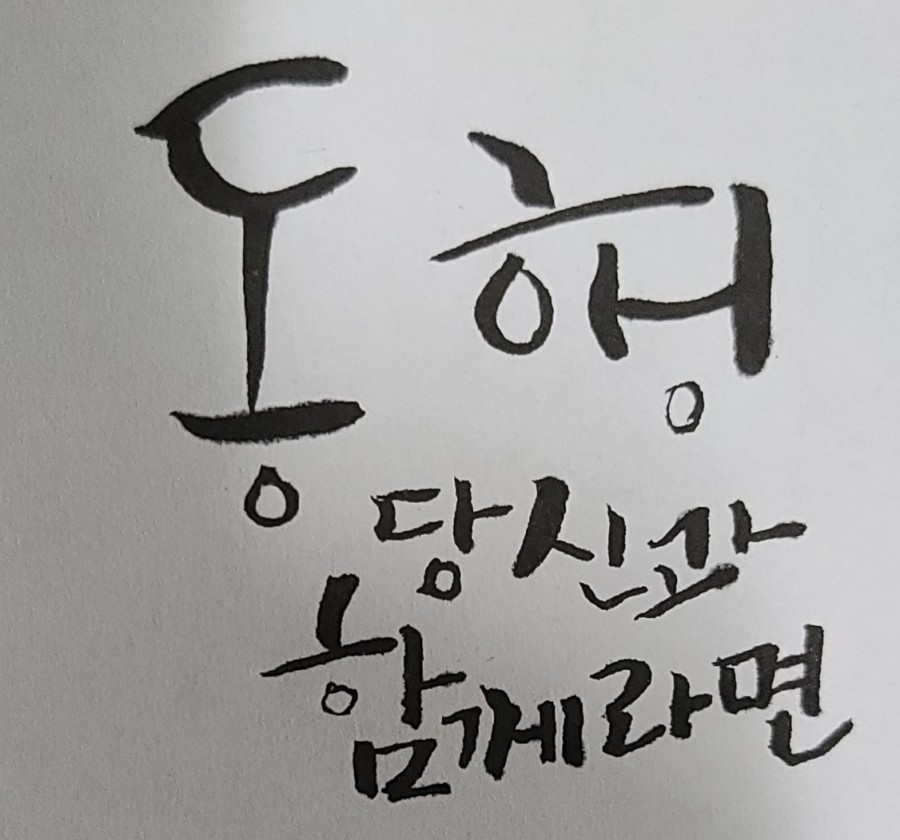 동행
당신과
함께라면